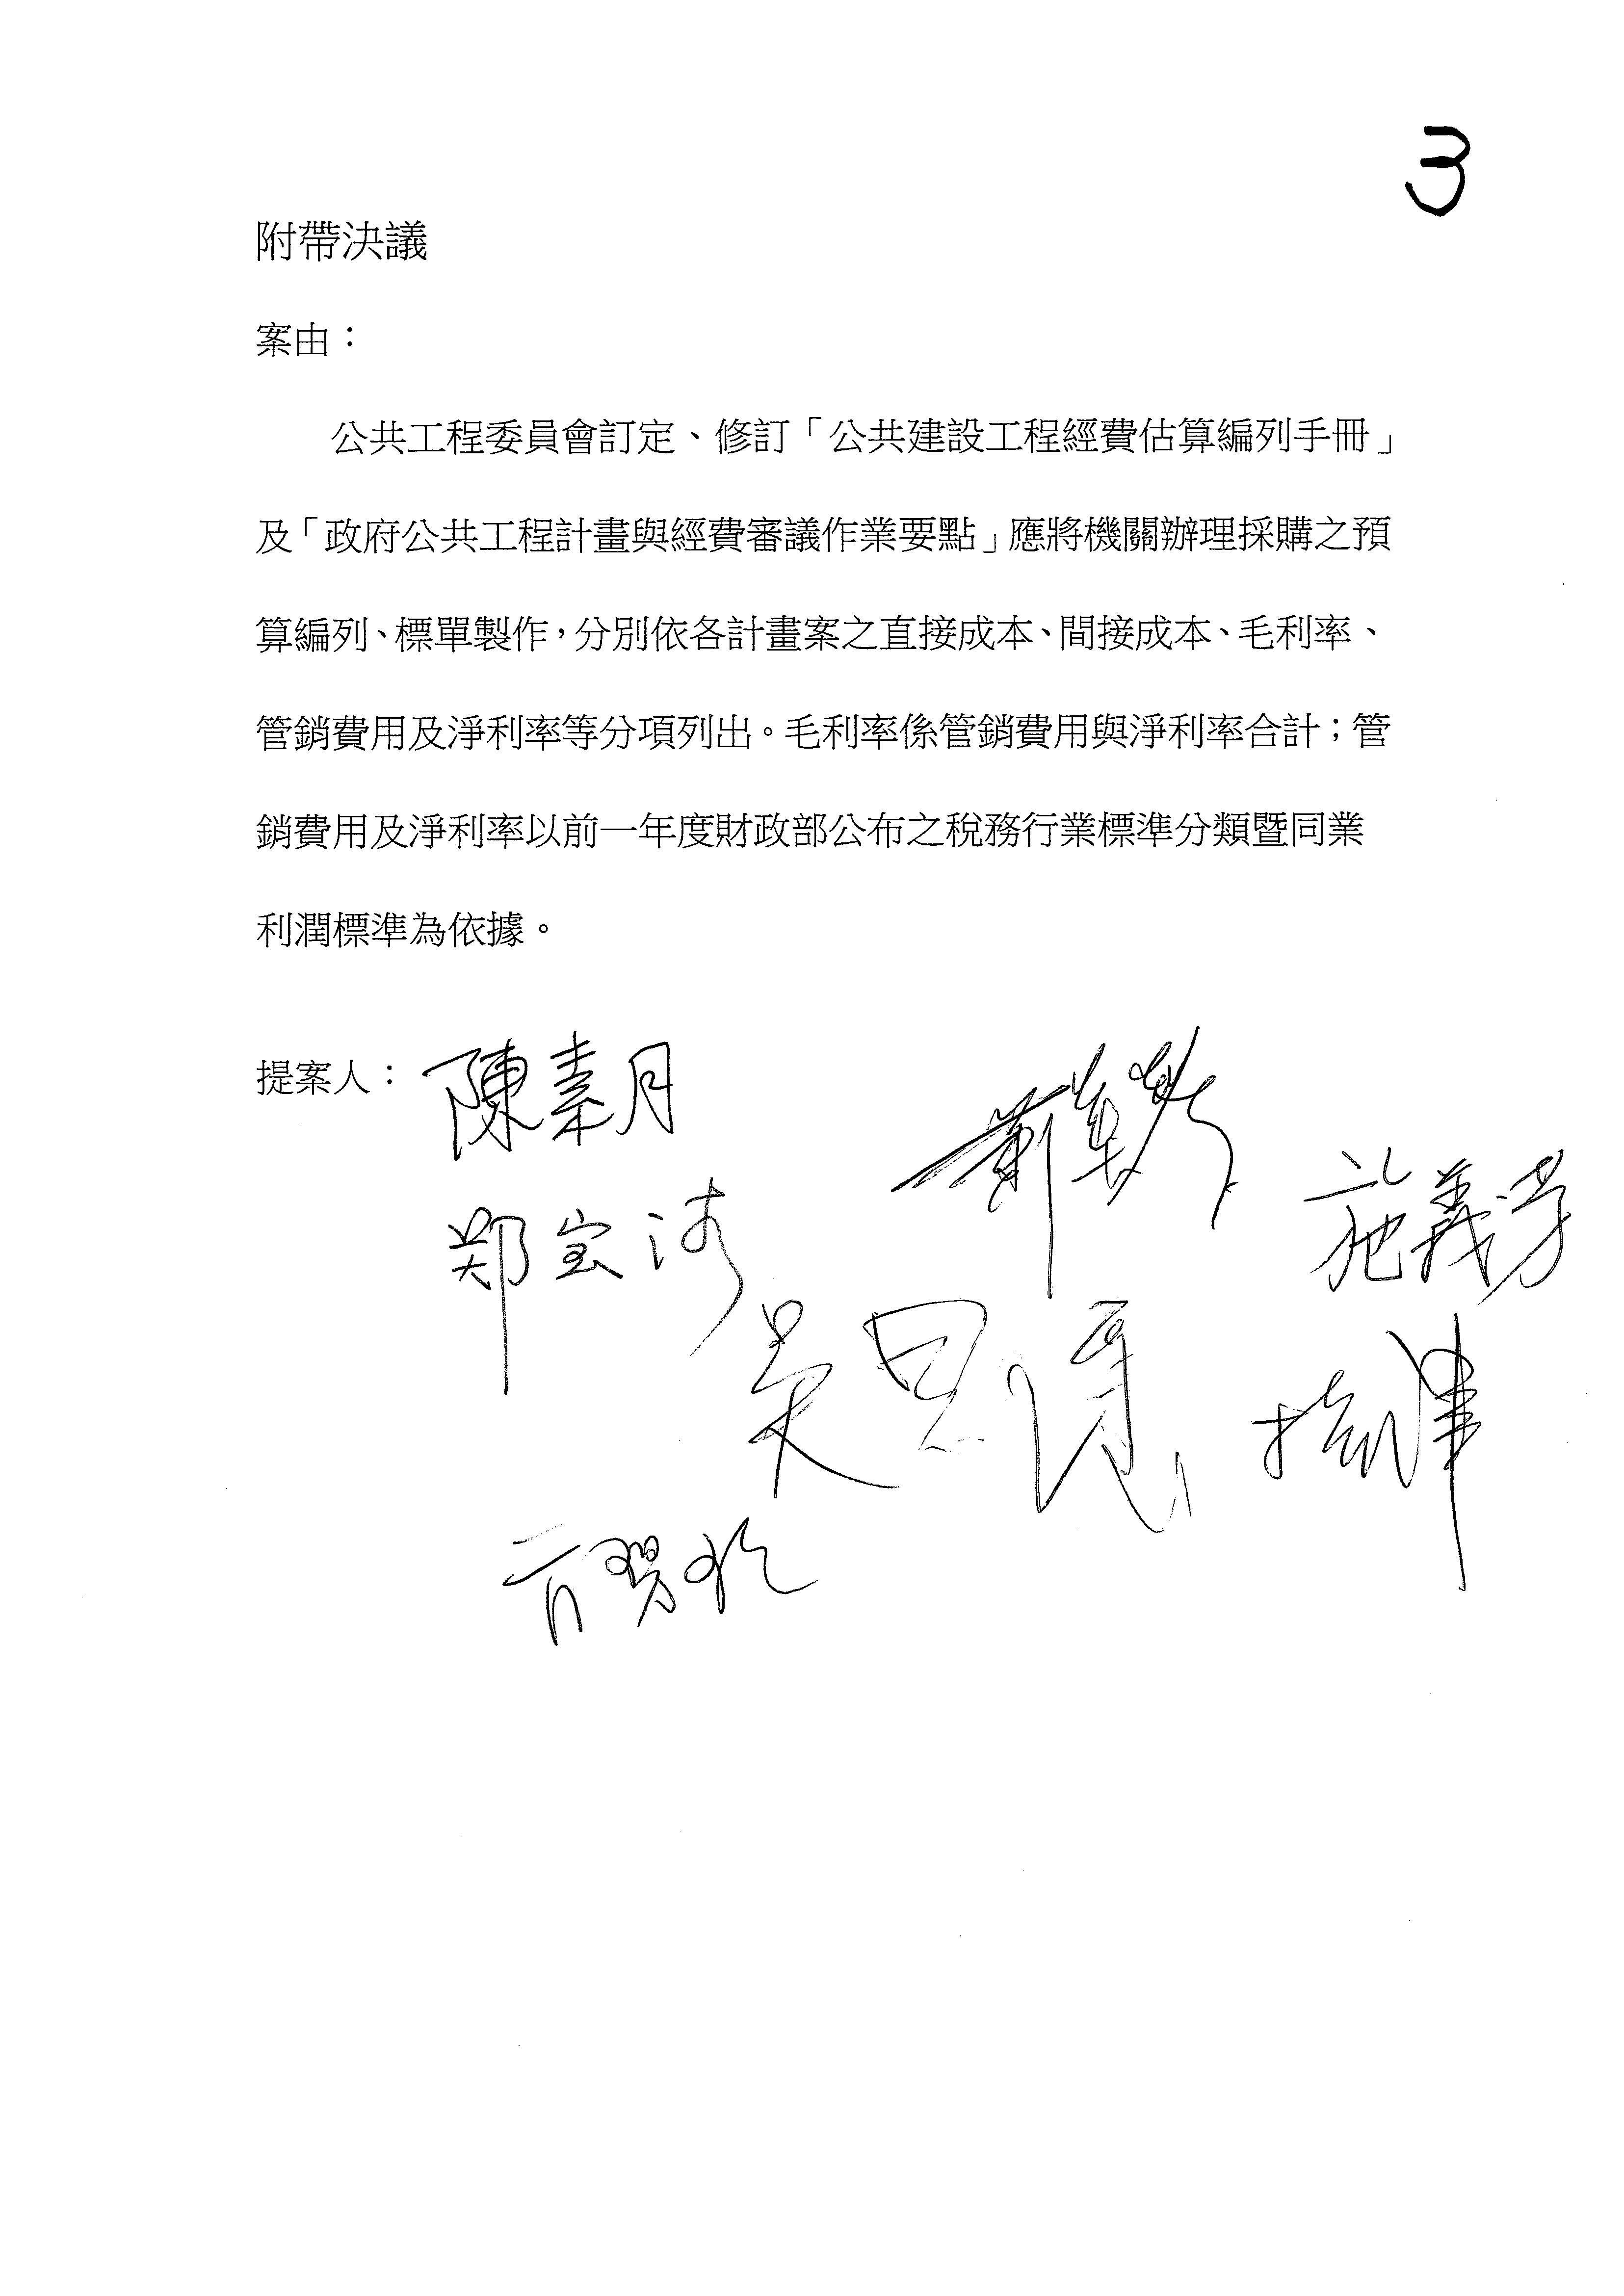 3
附帶決議
案由：
公共工程委員會訂定、修訂「公共建設工程經費估算編列手冊」
及「政府公共工程計畫與經費審議作業要點」應將機關辦理採購之預
算編列、標單製作，分別依各計畫案之直接成本、間接成本、毛利率、
管銷費用及淨利率等分項列出。毛利率係管銷費用與淨利率合計；管
銷費用及淨利率以前一年度財政部公布之稅務行業標準分類暨同業
利潤標準為依據。
提案人：陳素月
施義芳
郑宝清